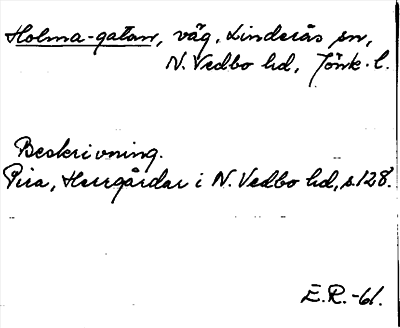 Holma-gatan, väg, Linderås sn,
N. Vedbo hd, Jönk. l.
Beskrivning.
Pira, Herrgårdar i N. Vedbo hd, s. 128.
E.R.-61.